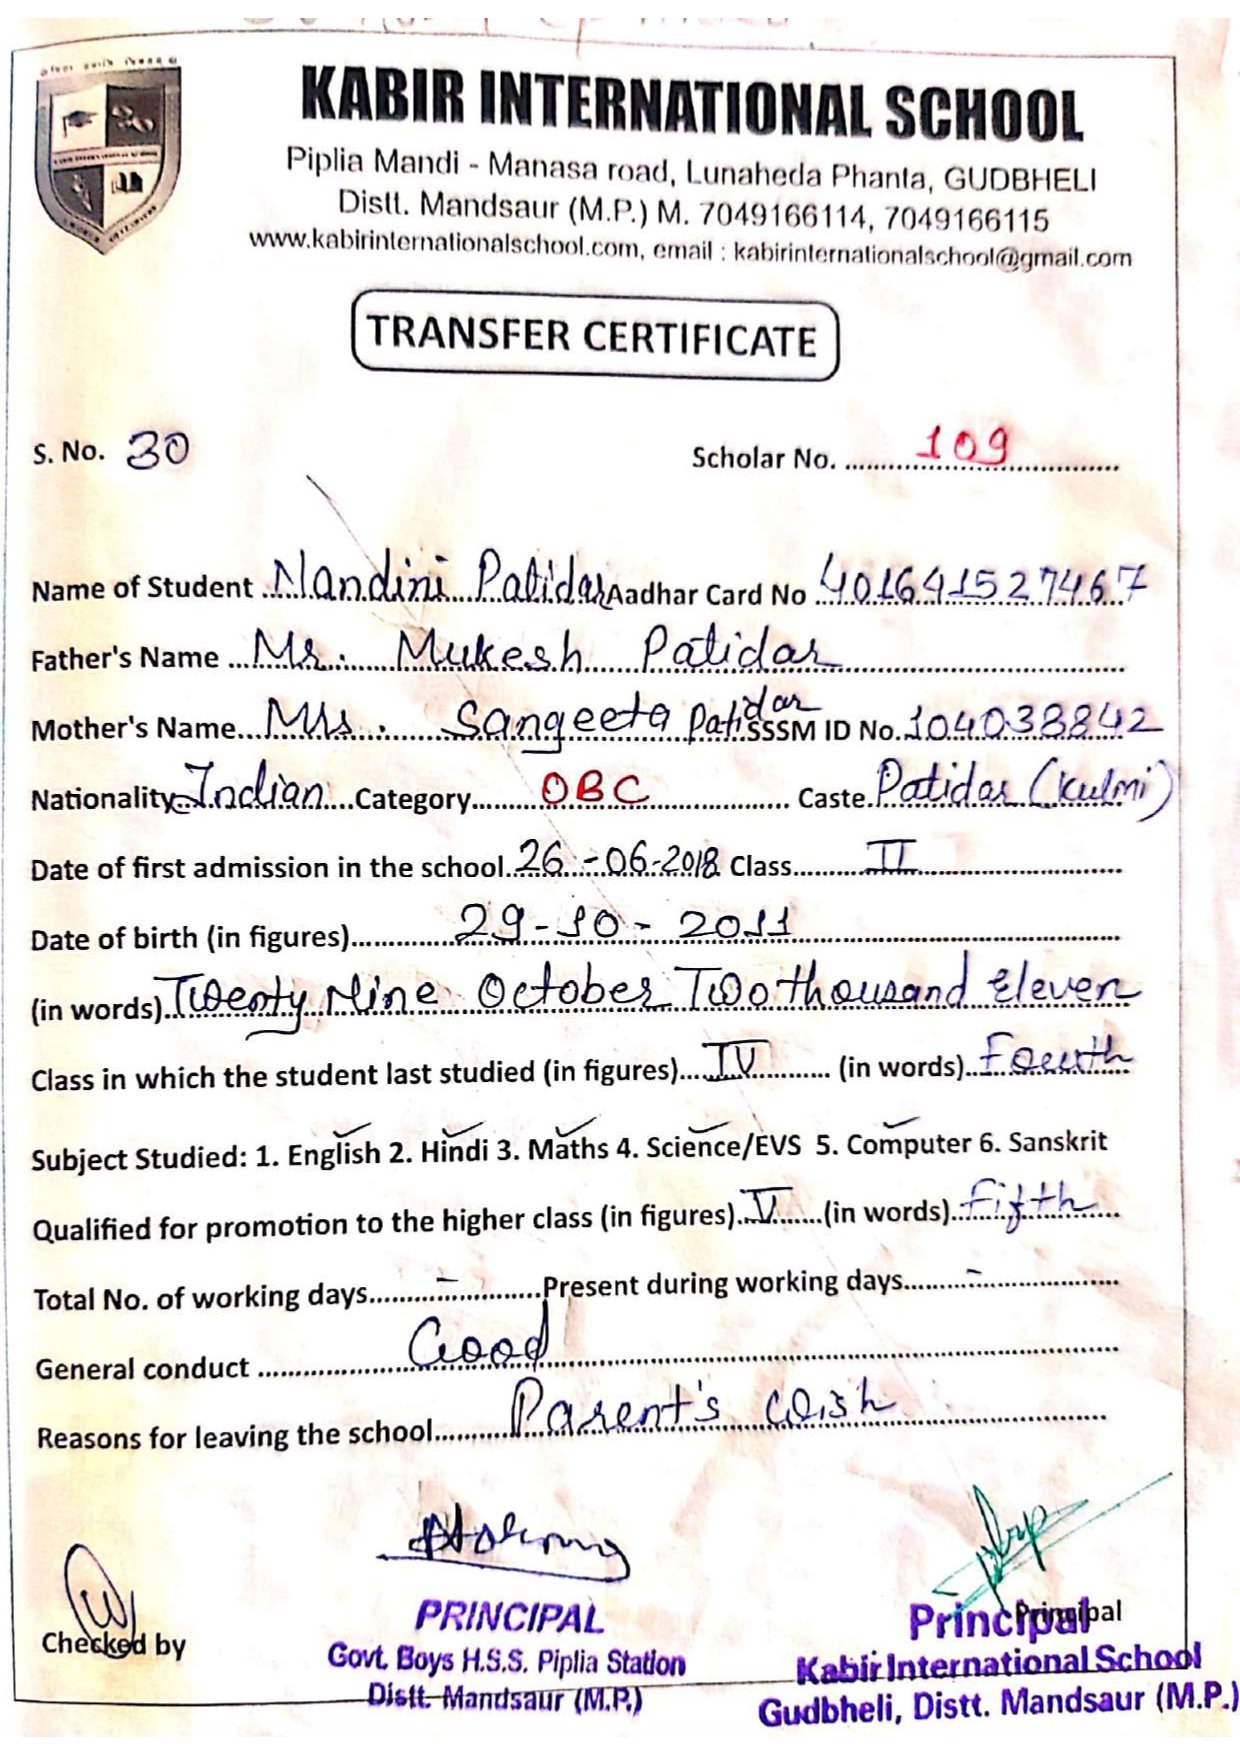 KABIR INTERNATIONAL SCHOOL
Piplia Mandi - Manasa road, Lunaheda Phanta, GUDBHELI
Distt. Mandsaur (M.P.) M. 7049166114, 7049166115
www.kabirinternationalschool.com, email : kabirinternationalschool@gmail.com
TRANSFER CERTIFICATE
S. No. 30 Scholar No. 109
Name of Student Nandini Patidar Aadhar Card No 401641527467
Father's Name Mr. Mukesh Patidar
Mother's Name Mrs. Sangeeta Patidar SSSM ID No. 104038842
Nationality Indian Category OBC Caste Patidar (Kulmi)
Date of first admission in the school 26-06-2018 Class II
Date of birth (in figures) 29-10-2011
(in words) Twenty Nine October Two thousand eleven
Class in which the student last studied (in figures) IV (in words) Fourth
Subject Studied: 1. English 2. Hindi 3. Maths 4. Science/EVS 5. Computer 6. Sanskrit
Qualified for promotion to the higher class (in figures) V (in words) Fifth
Total No. of working days - Present during working days -
General conduct Good
Reasons for leaving the school Parent's wish
Checked by
PRINCIPAL
Govt. Boys H.S.S. Piplia Station
Distt. Mandsaur (M.P.)
Principal
Principal
Kabir International School
Gudbheli, Distt. Mandsaur (M.P.)